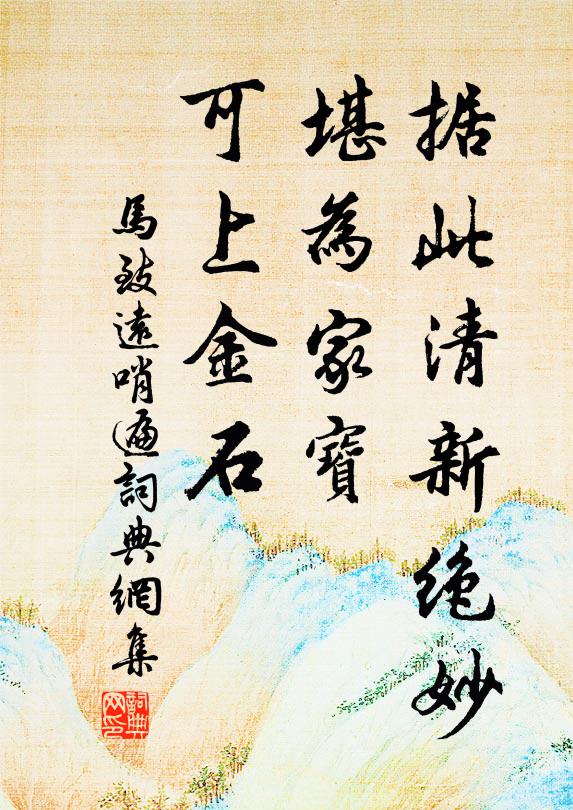 据此清新绝妙
堪為家寶
可上金石
馬致遠哨遍詞典網集
詞典
网印